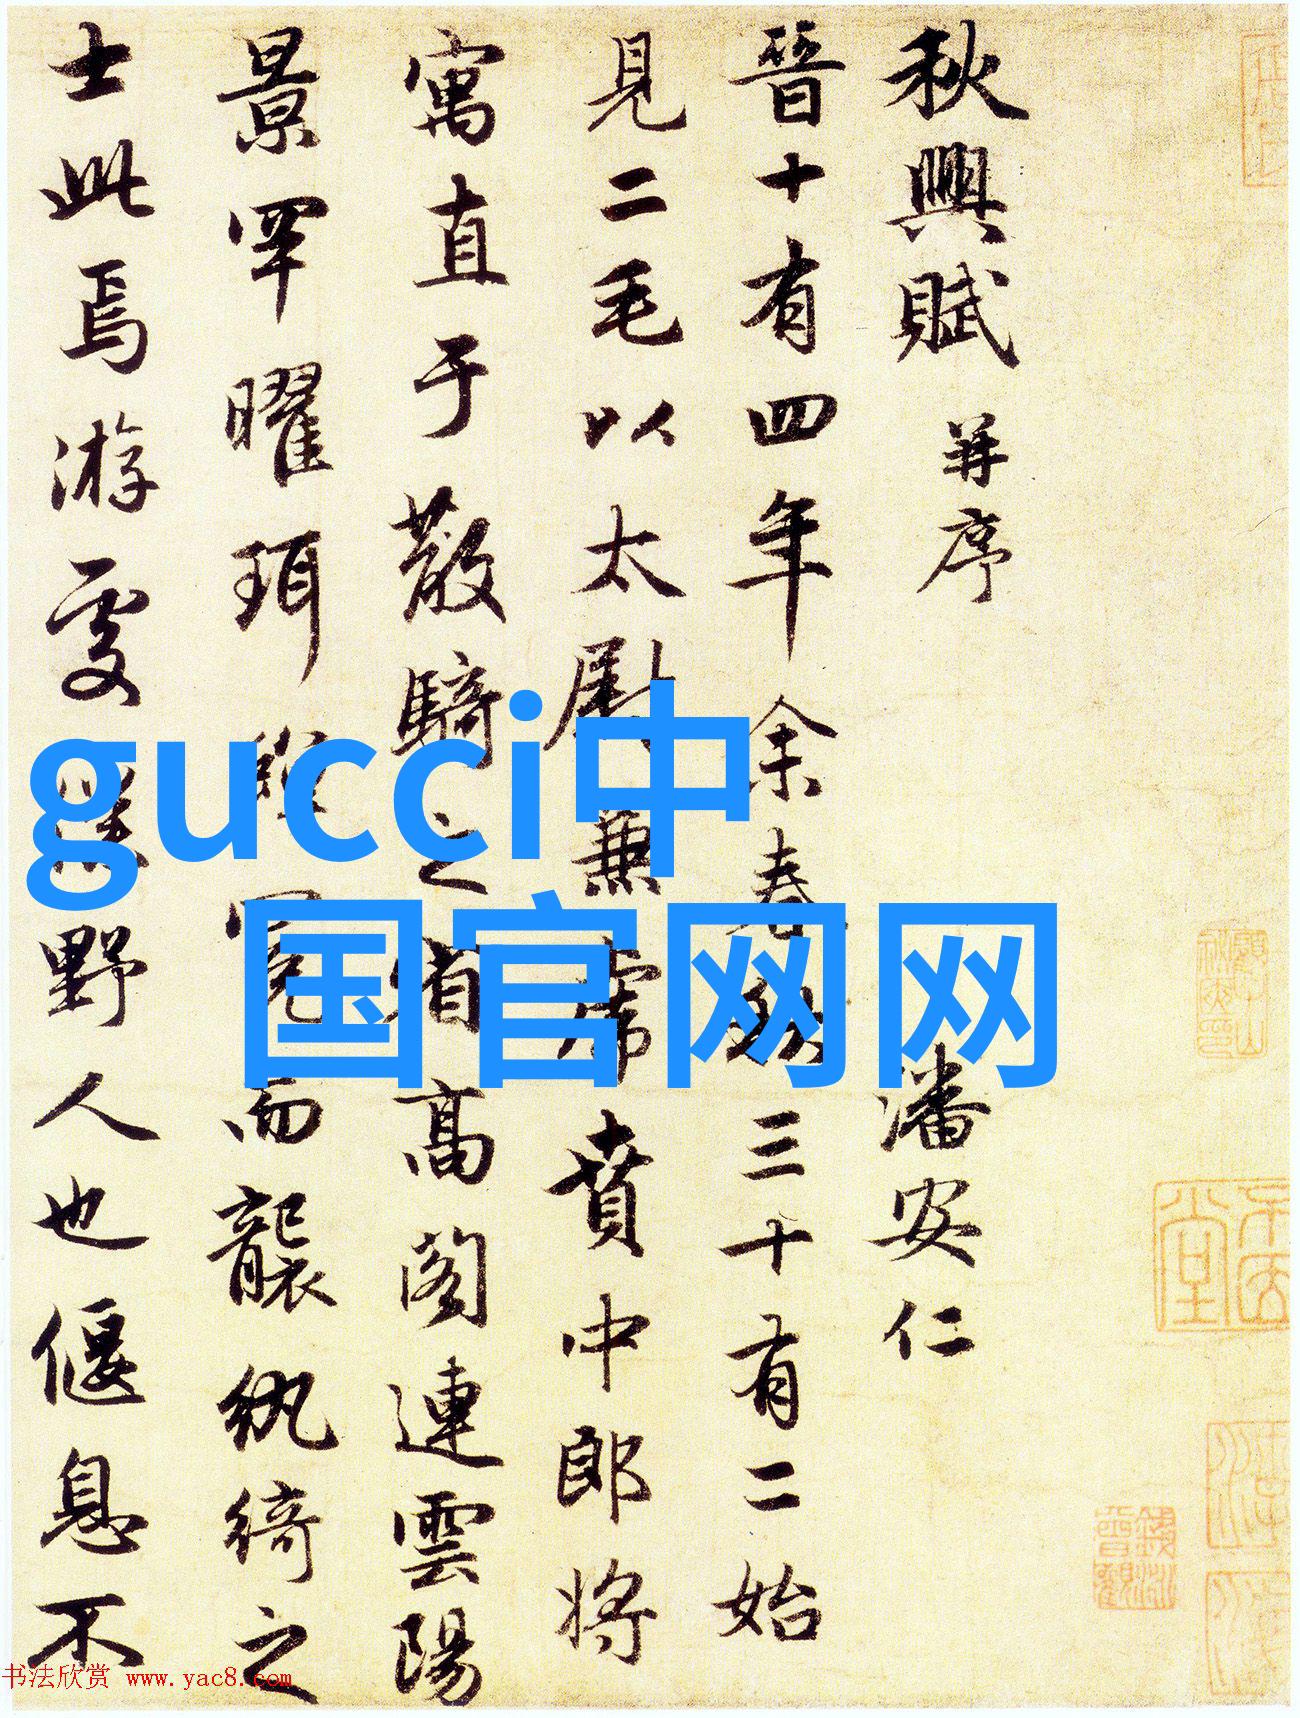 秋興賦 并序 潘安仁
晉十有四年余春秋三十有二始
見二毛以太尉兼虎賁中郎将
寓直于散騎之省高閣連雲陽
景罕曜珥蟬冕而襲紈綺之
士此焉游處僕野人也偃息不
gucci中
国官网网
书法欣赏 www.yac8.com